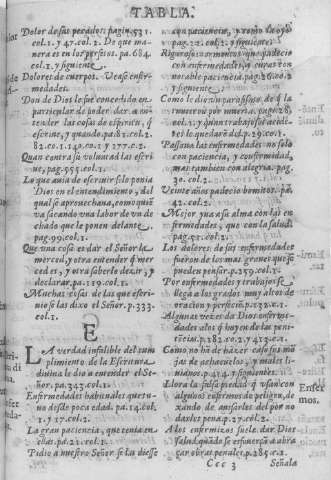 TABLA.
Dolor de sus pecados. pagin. 531.
col. 1. y 47. col. 2. De que ma
nera es en los perfetos. pa. 684.
col. 1. y siguiente.
Dolores de cuerpos. Vease enfer
medades.
Don de Dios le fue concedido en
particular de poder dar a en
tender las cosas de espiritu, q̃
escriue, y quando. pa. 81. col. 2.
82. co. 1. 140. co. 1. y 277. c. 2.
Quan contra su voluntad las escri
ue, pag. 555. col. 1.
Lo que auia de escriuir solo ponia
Dios en el entendimiento, del
qual se aprouechaua, como quiẽ
va sacando vna labor de vn de
chado que le ponen delante.
pag. 99. col. 1.
Que vna cosa es dar el Señor la
merced, y otra entender q̃ mer
ced es, y otra saberlo dezir, y
declarar, pa. 119. col. 1.
Muchas cosas de las que escri
uio se las dixo el Señor. p. 333.
col. 1.
E
LA verdad infalible del cum
plimiento de la Escritura
diuina le dio a entender el Se
ñor. pa. 343. col. 1.
Enfermedades habituales que tu
uo desde poca edad. pa. 14. col.
1. y 17. col. 2.
La gran paciencia, que tenia en
ellas. pa. 21. col. 1.
Pidio a nuestro Señor se la diesse
con paciencia, y como la oyò
pag. 22. col. 2. y siguiente.
con enfermedades, y curas con
notable paciencia. pag. 26. co. 2
y siguiente.
Como le dio vn paroxismo, de q̃ la
tuuieron por muerta, pag. 28.
col. 1. y quan trabajosos accidẽ
tes le quedarõ del. p. 29. co. 1.
Passaua las enfermedades no solo
con paciencia, y conformidad,
mas tambien con alegria. pag.
30. col. 2.
Veinte años padecio bomitos. pa.
42. col. 2.
Mejor yua a su alma con las en
fermedades, que con la salud.
pag. 51. col. 2.
Los dolores de sus enfermedades
fueron de los mas grandes que se
pueden pensar. p. 259. col. 1.
Por enfermedades y trabajos se
llega a los grados muy altos de
oracion y perfeciõ. p. 132. c. 1.
Algunas vezes da Dios enferme
dades a los q̃ huyen de las peni
tẽcias. p. 182. co. 2. y 413. c. 1.
Como no hã de hazer caso, sino bur
lar de achaquillos, y males li
uianos. p. 414. y siguientes.
Llora la falsa piedad q̃ vsan con
algunos enfermos de peligro, de
xando de auisarles del por no
darles pena. p. 27. col. 2.
A los enfermos suele dar Dios
salud, quãdo se esfuerçã a obrar
gar obras penales. p. 285. c. 2.
Enfer
mos.
Ccc 3
Señala